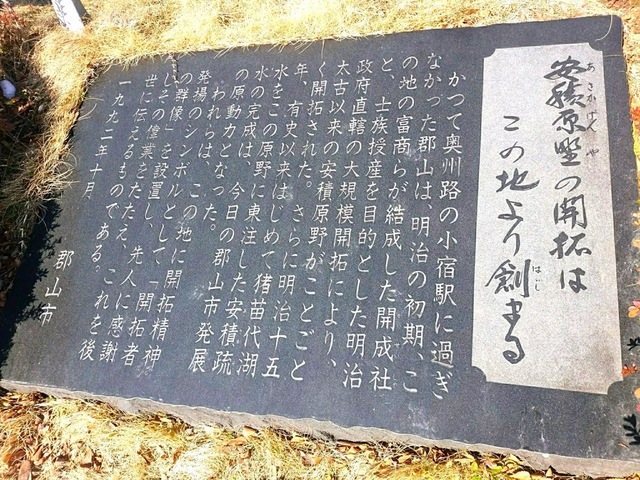 安積原野の開拓は
あさかげんや
この地より創まる
はじ
かつて奥州路の小宿駅に過ぎ
なかった郡山は、明治の初期、こ
の地の富商らが結成した開成社
と、士族授産を目的とした明治
政府直轄の大規模開拓により、
太古以来の安積原野がことごと
く開拓された。さらに明治十五
年、有史以来はじめて猪苗代湖
水をこの原野に東注した安積疏
水の完成は、今日の郡山市発展
の原動力となった。
われらは、この地に開拓精神
発揚のシンボルとして「開拓者
の群像」を設置し、先人に感謝
しその偉業をたたえ、これを後
世に伝えるものである。
一九九二年十月
郡山市